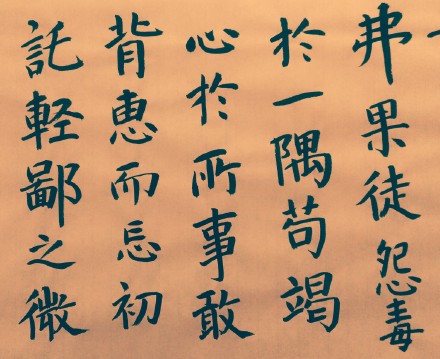 弗果徒怨毒
於一隅苟竭
心於所事敢
背恵而忘初
託軽鄙之微